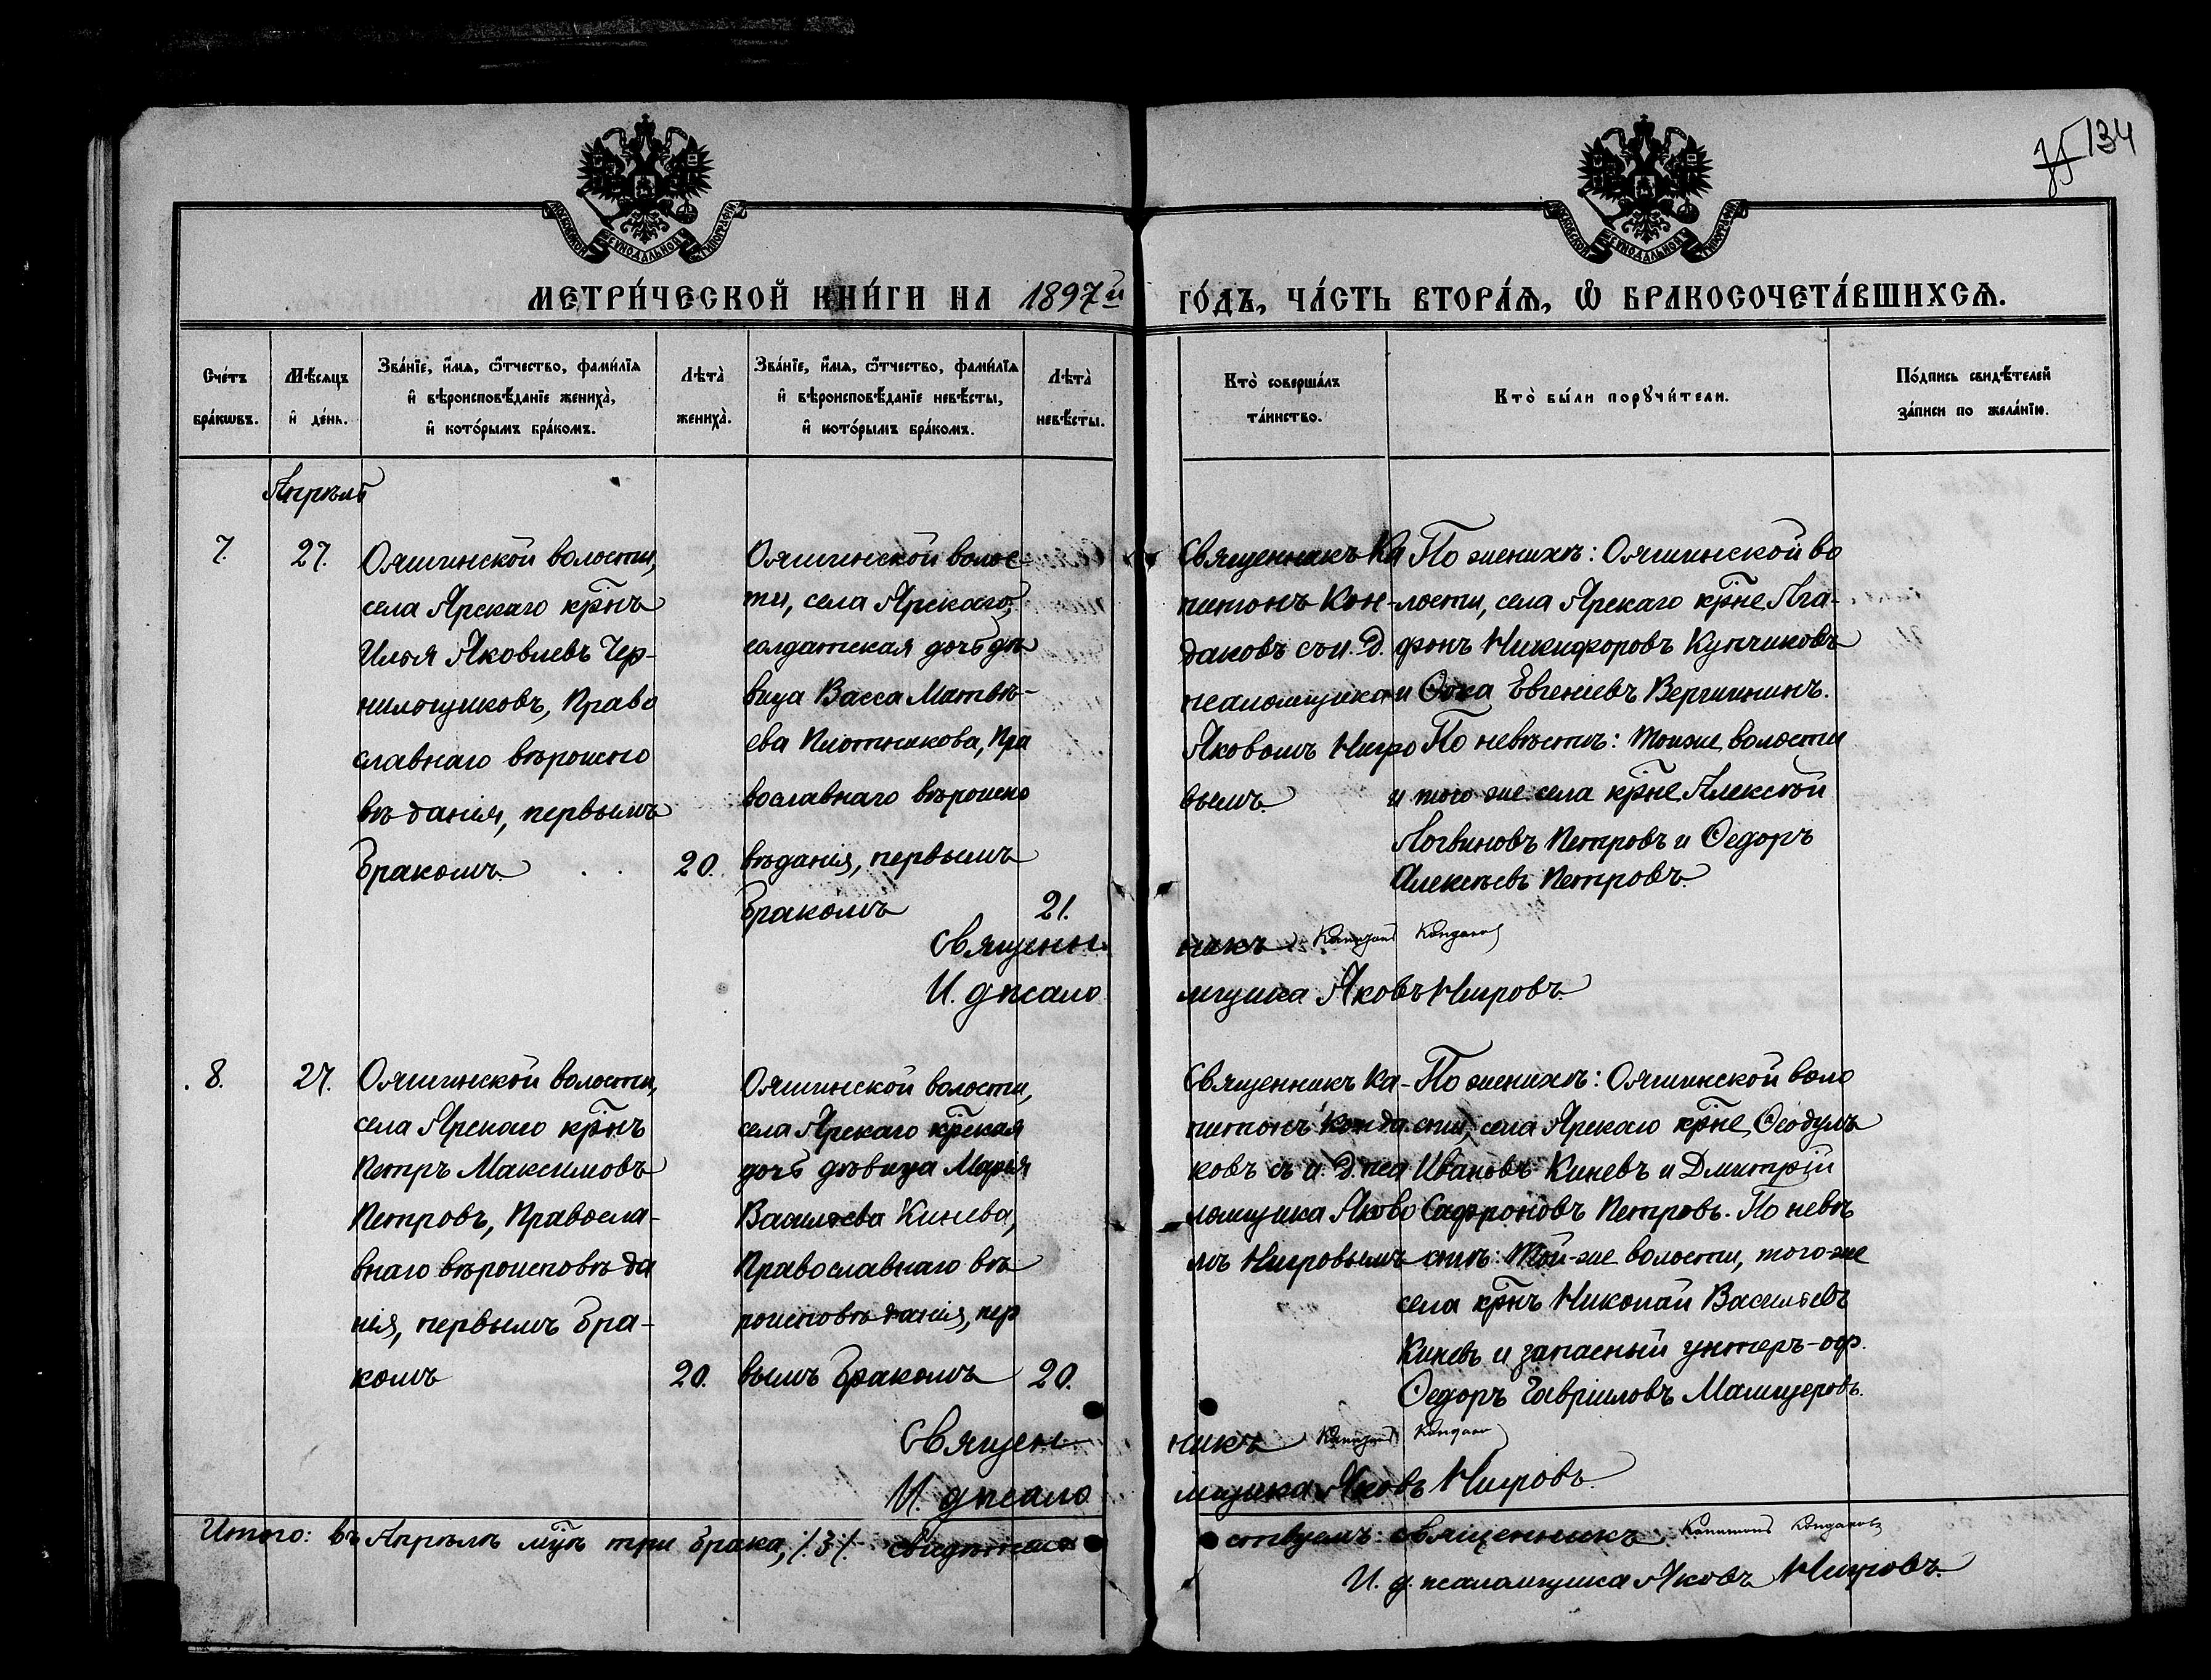 75 134
МОСКОВСКОЙ СѴНОДАЛЬНОЙ ТИПОГРАФІИ
МОСКОВСКОЙ СѴНОДАЛЬНОЙ ТИПОГРАФІИ
МЕТРИ́ЧЕСКОЙ КНИ́ГИ НА 1897й
ГО́ДЪ, ЧА́СТЬ ВТОРА́Ѧ, Ѽ БРАКОСОЧЕТА́ВШИХСѦ.
Сче́тъ
бра́кѡвъ.
Мѣ́сяцъ
и҆ де́нь.
Зва́нїе, и҆́мѧ, ѻ҆́тчество, фами́лїѧ
и҆ вѣроисповѣ́данїе жениха̀,
и҆ кото́рымъ бра́комъ.
Лѣта̀
жениха̀.
Зва́нїе, и҆́мѧ, ѻ҆́тчество, фами́лїѧ
и҆ вѣроисповѣ́данїе невѣ́сты,
и҆ кото́рымъ бра́комъ.
Лѣта̀
невѣ́сты.
Кто̀ соверша́лъ
та́инство.
Кто̀ бы́ли порꙋчи́тели.
По́дпись свидѣ́телей
за́писи по жела́нїю.
Апрѣль
7.
27.
Ояшинской волости,
села Ярскаго кр̃нъ
Илья Яковлевъ Чер-
нильщиковъ, Право
славнаго вѣроиспо
вѣданія, первымъ
бракомъ
20.
Ояшинской волос-
ти, села Ярскаго,
солдатская дочь дѣ
вица Васса Матвѣ-
ева Плотникова, Пра
вославнаго вѣроиспо
вѣданія, первымъ
бракомъ
21.
Священникъ Ка
питонъ Кон-
даковъ съ и. д.
псаломщика
Яковомъ Нигро
вымъ.
По женихѣ: Ояшинской во
лости, села Ярскаго кр̃не Ага-
фонъ Никифоровъ Купчиковъ
и Ѳока Евгеніевъ Вершининъ.
По невѣстѣ: Тойже волости
и того же села кр̃не Алексѣй
Логвиновъ Петровъ и Ѳедоръ
Алексѣевъ Петровъ.
Священникъ Капитонъ Кондаковъ
И. д псаломщика Яковъ Нигровъ.
8.
27.
Ояшинской волости,
села Ярскаго кр̃нъ
Петръ Максимовъ
Петровъ, Правосла-
внаго вѣроисповѣда
нія, первымъ бра-
комъ
20.
Ояшинской волости,
села Ярскаго кр̃ская
дочь дѣвица Марія
Васильева Кинева,
Православнаго вѣ
роисповѣданія, пер
вымъ бракомъ
20.
Священникъ Ка-
питонъ Конда
ковъ съ и. д. пса
ломщика Яково
мъ Нигровымъ
По женихѣ: Ояшинской воло
сти, села Ярскаго кр̃не, Ѳеодулъ
Ивановъ Киневъ и Дмитрій
Сафроновъ Петровъ. По невѣ
стѣ: Той-же волости, того-же
села кр̃нъ Николай Васильевъ
Киневъ и запасный унтеръ-оф.
Ѳедоръ Гавріиловъ Мамцеровъ.
Священникъ Капитонъ Кондаковъ
И. д псаломщика Яковъ Нигровъ.
Итого: въ Апрѣлѣ мц̃ѣ три брака, /.3/. свидѣтельствуемъ: священникъ Капитонъ Кондаковъ
И. д. псаломщика Яковъ Нигровъ.